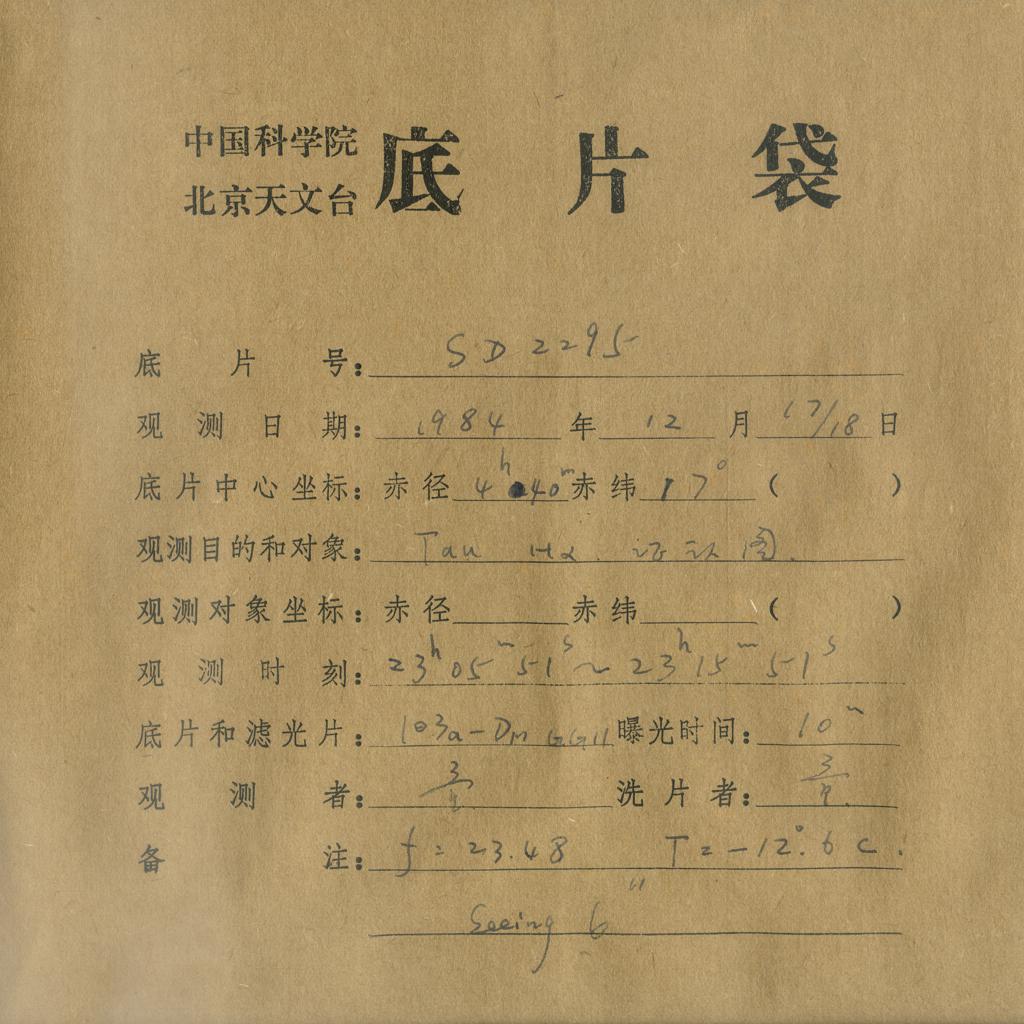 中国科学院
北京天文台
底片袋
底片号：SD 2295
观测日期：1984年12月17/18日
底片中心坐标：赤径4h40m赤纬17°（ ）
观测目的和对象：Tau Hα 证认图.
观测对象坐标：赤径 赤纬 （ ）
观测时刻：23h05m51s～23h15m51s
底片和滤光片：103a-D GG11曝光时间：10m
观测者： 洗片者：
备注：f=23.48 T=-12°.6 C.
Seeing 6"